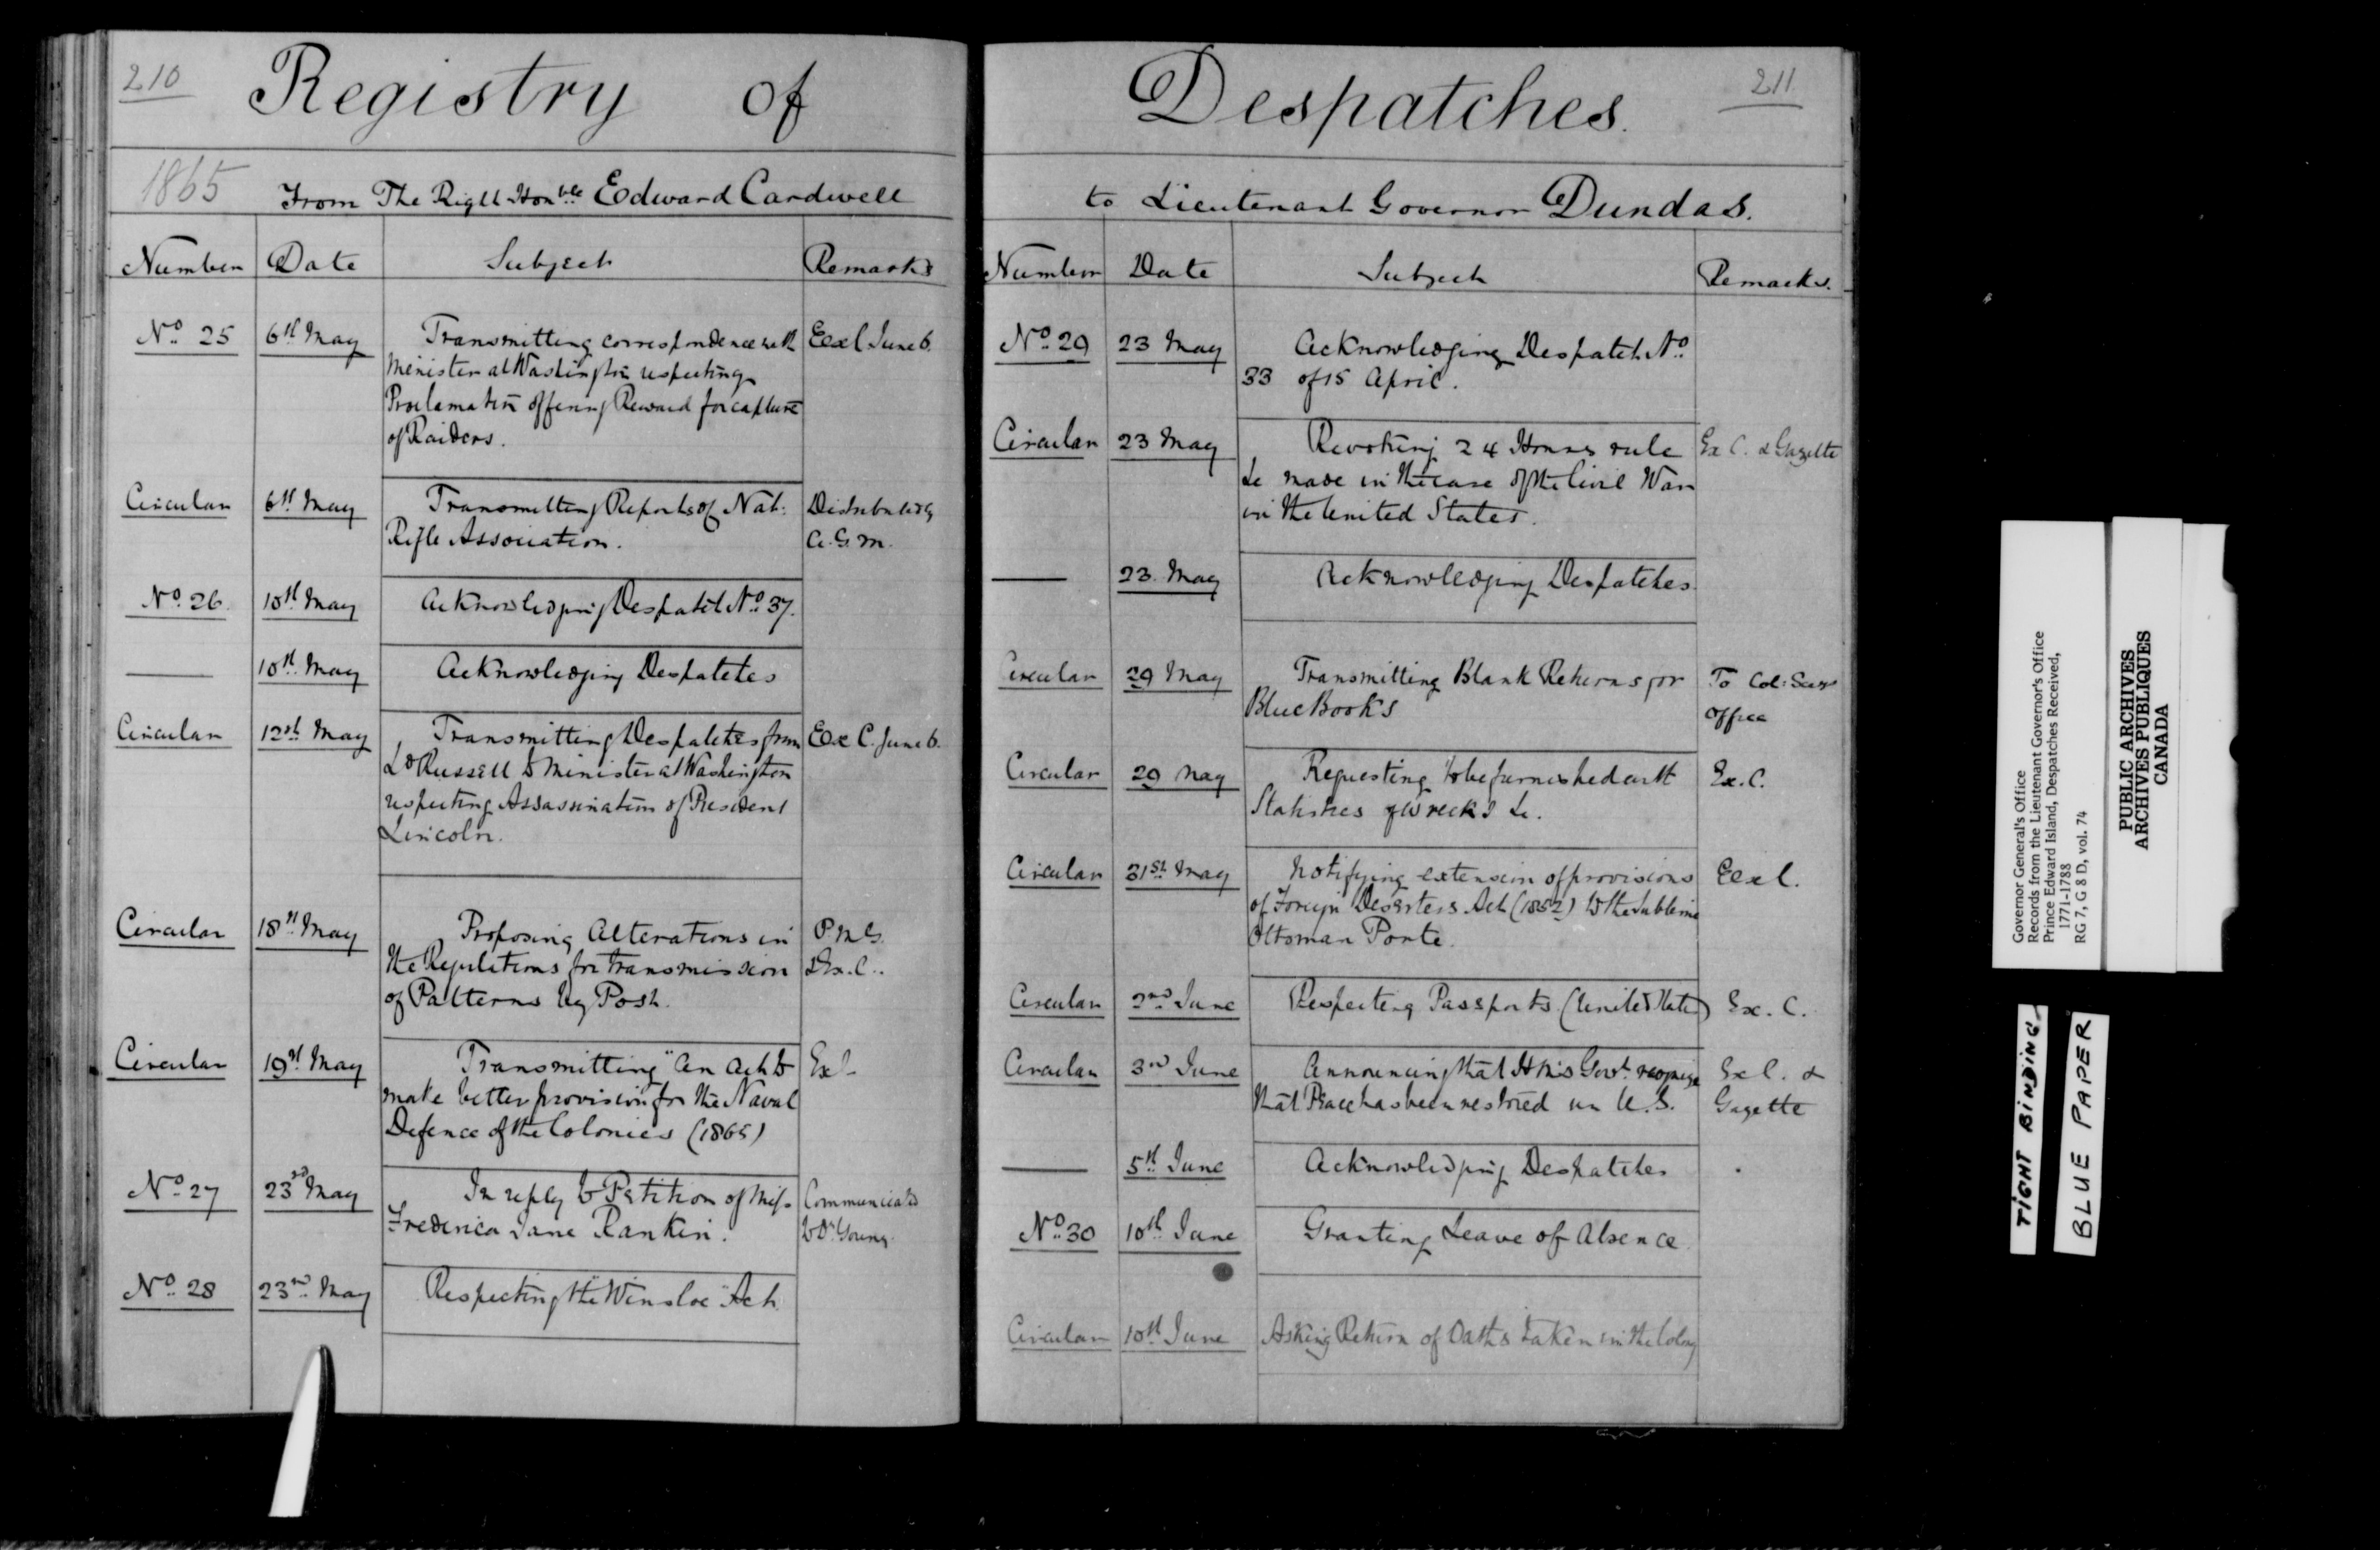 210
Registry of
1865
From The Right Honble Edward Cardwell
Number Date Subject Remarks
No. 25 6th May Transmitting correspondence with Excl June 6.
Minister at Washington respecting
Proclamation offering Reward for capture
of Raiders.
Circular 6th May Transmitting Reports of Nat: Distributed by
Rifle Association. A.G.M.
No. 26. 10th May Acknowledging Despatch No. 37.
10th May Acknowledging Despatches
Circular 12th May Transmitting Despatches from Ex C. June 6.
Ld Russell to Minister at Washington
respecting Assassination of President
Lincoln.
Circular 18th May Proposing Alterations in P M G.
the Regulations for transmission & Ex. C.
of Patterns by Post.
Circular 19th May Transmitting "An Act to Ex C
make better provision" for the Naval
Defence of the Colonies (1865)
No. 27 23rd May In reply to Petition of Miss Communicated
Frederica Jane Rankin. to Dr Young
No. 28 23rd May Respecting the "Winsloe" Act.
211
Despatches.
to Lieutenant Governor Dundas.
Number Date Subject Remarks.
No. 29 23 May Acknowledging Despatch No.
33 of 15 April.
Circular 23 May Revoking 24 Hours rule Ex C. & Gazette
&c made in the case of the Civil War
in the United States.
23. May Acknowledging Despatches.
Circular 29 May Transmitting Blank Returns for To Col: Secys
Blue Books Office
Circular 29 May Requesting to be furnished with Ex. C.
Statistics of Wrecks &c.
Circular 31st May Notifying extension of provisions Ex C.
of Foreign Deserters Act (1852) to the Sublime
Ottoman Porte.
Circular 2nd June Respecting Passports (United States) Ex. C.
Circular 3rd June Announcing that H M's Govt. recognize Ex C. &
that Peace has been restored in U.S. Gazette
5th June Acknowledging Despatches
No. 30 10th June Granting Leave of Absence
Circular 10th June Asking Return of Oaths taken in the Colony
Governor General's Office
Records from the Lieutenant Governor's Office
Prince Edward Island, Despatches Received,
1771-1788
RG 7, G 8 D, vol. 74
PUBLIC ARCHIVES
ARCHIVES PUBLIQUES
CANADA
TIGHT BINDING
BLUE PAPER